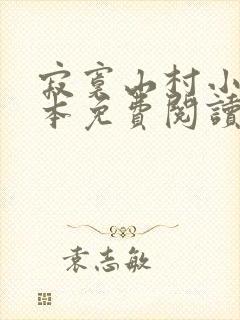 寂寞山村小
本免費閱讀
袁志敏